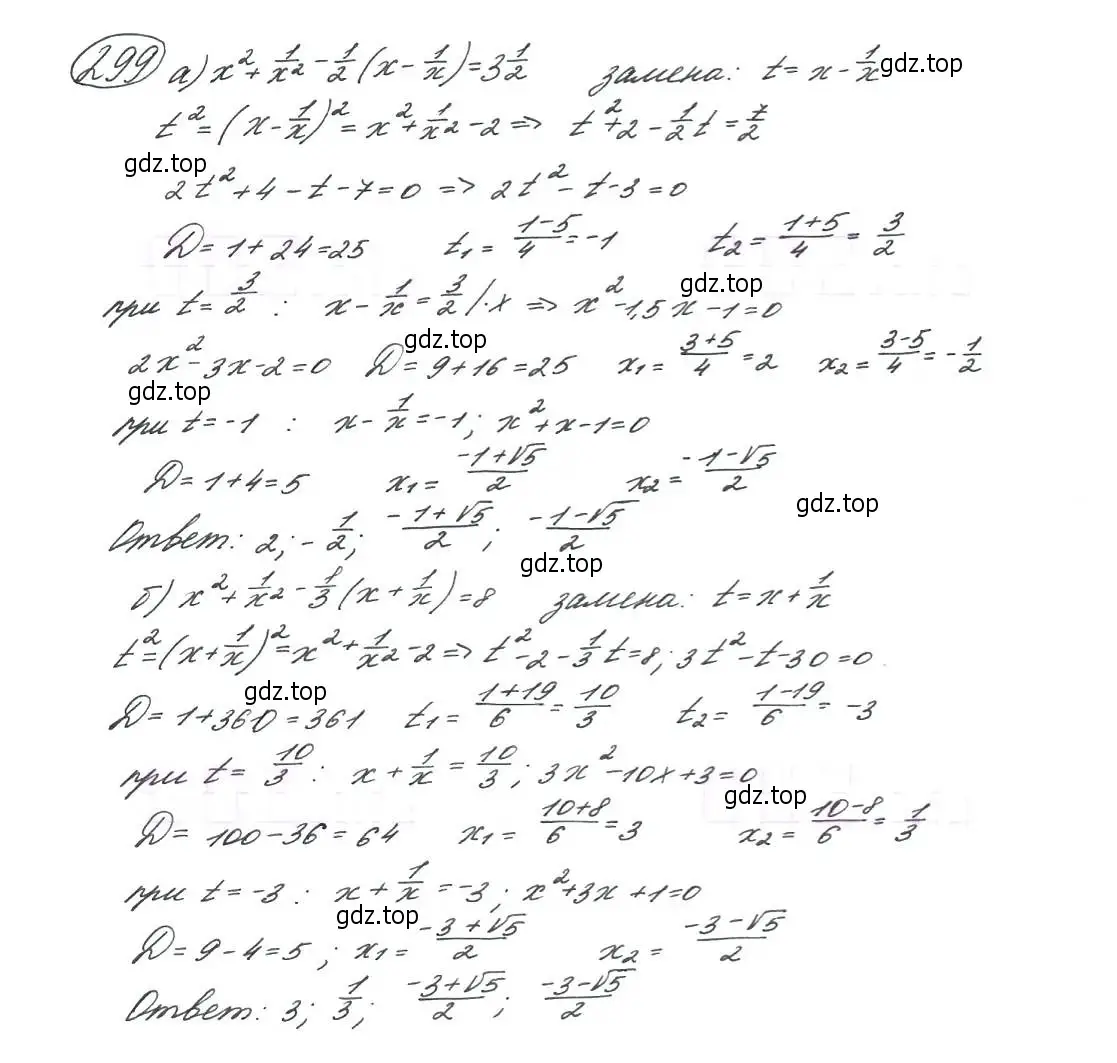 299 а) x² + 1/x² - 1/2 (x - 1/x) = 3 1/2 замена: t = x - 1/x gdz.top
t² = (x - 1/x)² = x² + 1/x² - 2 => t² + 2 - 1/2 t = 7/2
gdz.top
2t² + 4 - t - 7 = 0 => 2t² - t - 3 = 0
D = 1 + 24 = 25 t₁ = (1-5)/4 = -1 t₂ = (1+5)/4 = 3/2
gdz.top
при t = 3/2 : x - 1/x = 3/2 /·x => x² - 1,5x - 1 = 0
gdz.top
2x² - 3x - 2 = 0 D = 9 + 16 = 25 x₁ = (3+5)/4 = 2 x₂ = (3-5)/4 = -1/2
gdz.top
при t = -1 : x - 1/x = -1; x² + x - 1 = 0
D = 1 + 4 = 5 x₁ = (-1+√5)/2 x₂ = (-1-√5)/2
gdz.top
Ответ: 2; -1/2; (-1+√5)/2; (-1-√5)/2
gdz.top
б) x² + 1/x² - 1/3 (x + 1/x) = 8 замена: t = x + 1/x
t² = (x + 1/x)² = x² + 1/x² - 2 => t² - 2 - 1/3 t = 8; 3t² - t - 30 = 0.
gdz.top
D = 1 + 360 = 361 t₁ = (1+19)/6 = 10/3 t₂ = (1-19)/6 = -3
при t = 10/3 : x + 1/x = 10/3; 3x² - 10x + 3 = 0
gdz.top
D = 100 - 36 = 64 x₁ = (10+8)/6 = 3 x₂ = (10-8)/6 = 1/3
при t = -3 : x + 1/x = -3; x² + 3x + 1 = 0
gdz.top
D = 9 - 4 = 5; x₁ = (-3+√5)/2 x₂ = (-3-√5)/2
Ответ: 3; 1/3; (-3+√5)/2; (-3-√5)/2